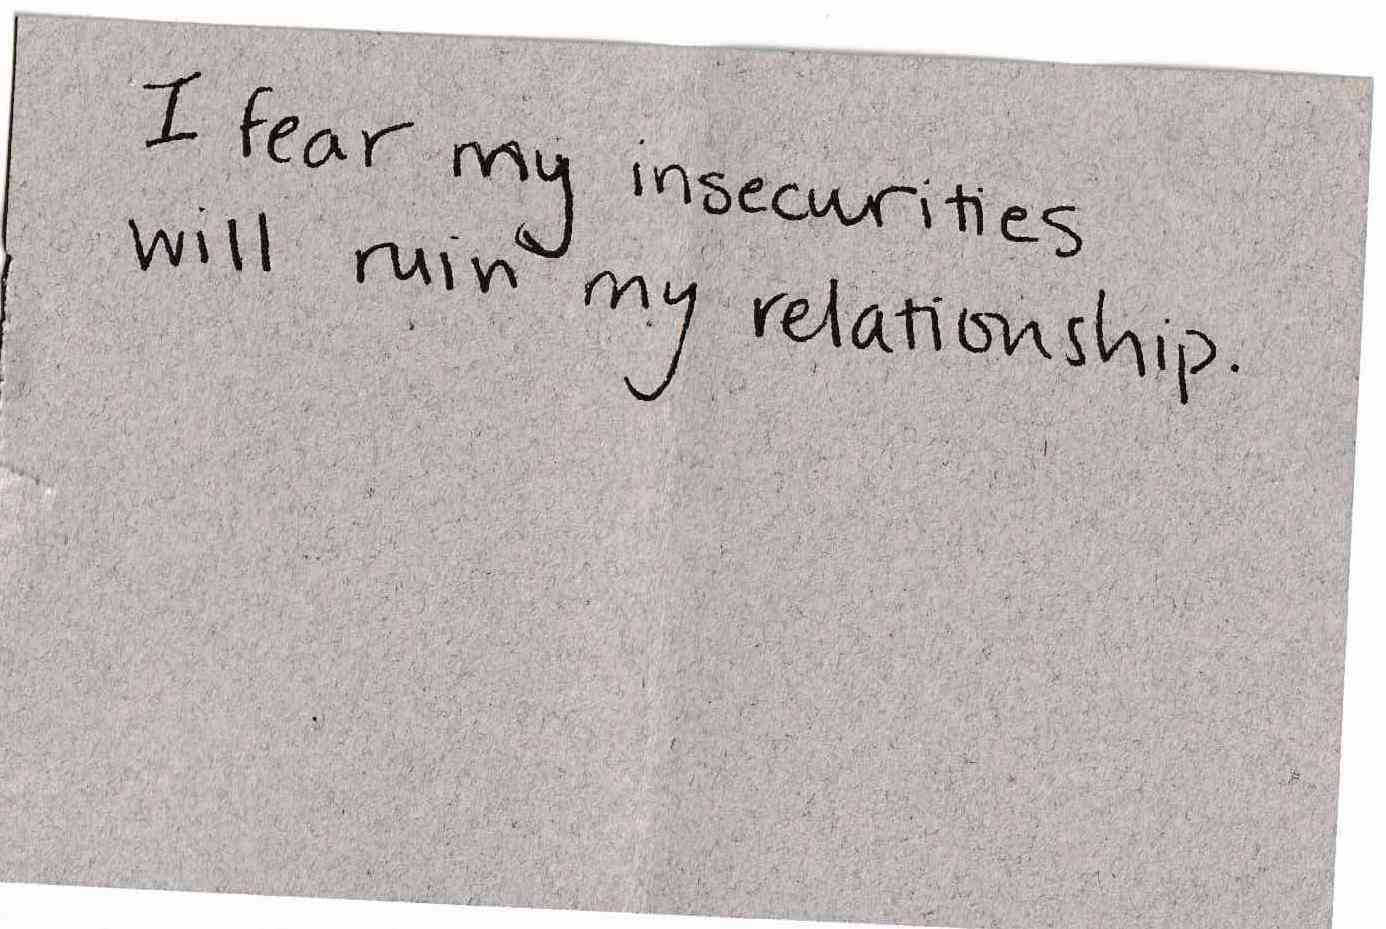 I fear my insecurities
will ruin my relationship.